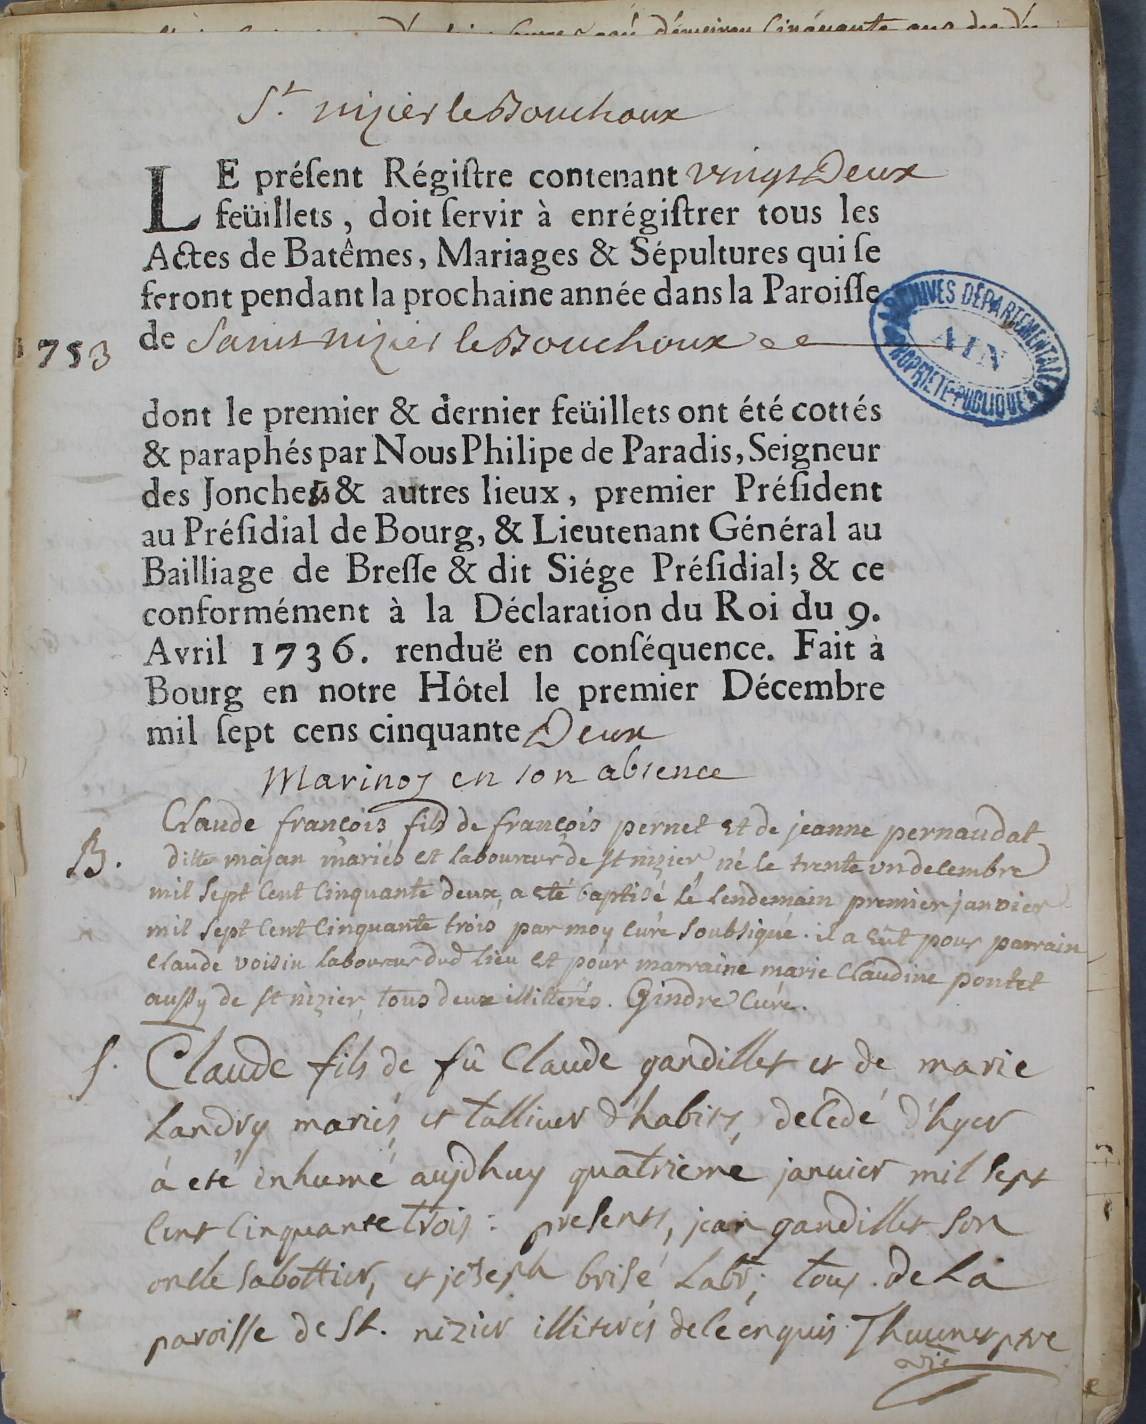 St. nizier le Bouchoux
LE préſent Régiſtre contenant vingt Deux
feüillets, doit ſervir à enrégiſtrer tous les
Actes de Batêmes, Mariages & Sépultures qui ſe
feront pendant la prochaine année dans la Paroiſſe
de Saint nizier le Bouchoux
1753
ARCHIVES DÉPARTEMENTALES
AIN
PROPRIÉTÉ PUBLIQUE
dont le premier & dernier feüillets ont été cottés
& paraphés par Nous Philipe de Paradis, Seigneur
des Jonches & autres lieux, premier Préſident
au Préſidial de Bourg, & Lieutenant Général au
Bailliage de Breſſe & dit Siége Préſidial; & ce
conformément à la Déclaration du Roi du 9.
Avril 1736. renduë en conſéquence. Fait à
Bourg en notre Hôtel le premier Décembre
mil ſept cens cinquante Deux
en son absence
Claude françois fils de françois pernet et de jeanne pernaudat
B. ditte majan mariés et laboureur de st nizier, né le trente un decembre
mil sept cent cinquante deux, a eté baptisé le lendemain premier janvier
mil sept cent cinquante trois par moy curé soubsigué. il a eût pour parrain
claude voisin laboureur dud lieu et pour marraine marie claudine pontet
aussy de st nizier, tous deux illiterés. Gindre curé.
S. Claude fils de fû Claude gandillet et de marie
Landry mariés, et tallieur d'habits, decedé d'hyer
á eté inhumé aujdhuy quatrieme janvier mil sept
cent cinquante trois: presents, jean gandillet son
oncle sabottier, et joseph brisé Labr; tous de La
paroisse de St. nizier illiterés de ce enquis ptre
vic